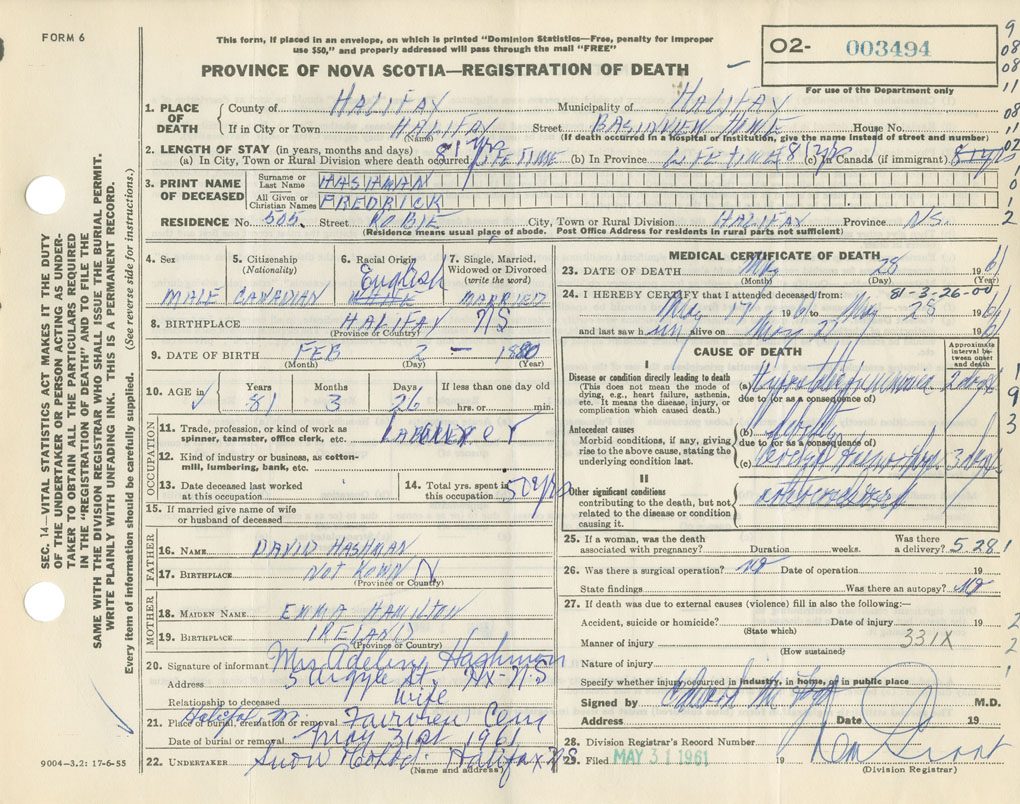 FORM 6
This form, if placed in an envelope, on which is printed "Dominion Statistics—Free, penalty for improper
use $50," and properly addressed will pass through the mail "FREE"
PROVINCE OF NOVA SCOTIA—REGISTRATION OF DEATH
O2- 003494
For use of the Department only
SEC. 14—VITAL STATISTICS ACT MAKES IT THE DUTY
OF THE UNDERTAKER OR PERSON ACTING AS UNDER-
TAKER TO OBTAIN ALL THE PARTICULARS REQUIRED
IN THE "REGISTRATION OF DEATH" AND TO FILE THE
SAME WITH THE DIVISION REGISTRAR WHO SHALL ISSUE THE BURIAL PERMIT.
WRITE PLAINLY WITH UNFADING INK. THIS IS A PERMANENT RECORD.
Every item of information should be carefully supplied. (See reverse side for instructions.)
1. PLACE OF DEATH
County of HALIFAX Municipality of HALIFAX
If in City or Town HALIFAX Street BASINVIEW HOME House No.
(Name) (If death occurred in a hospital or institution, give the name instead of street and number)
2. LENGTH OF STAY (in years, months and days)
(a) In City, Town or Rural Division where death occurred 81 yrs LIFE TIME (b) In Province LIFE TIME 81 yrs (c) in Canada (if immigrant)
3. PRINT NAME OF DECEASED
Surname or Last Name HASHMAN
All Given or Christian Names FREDRICK
RESIDENCE No. 505 Street ROBIE City, Town or Rural Division HALIFAX Province N.S.
(Residence means usual place of abode. Post Office Address for residents in rural parts not sufficient)
4. Sex MALE
5. Citizenship (Nationality) CANADIAN
6. Racial Origin English
7. Single, Married, Widowed or Divorced (write the word) MARRIED
8. BIRTHPLACE HALIFAX NS
(Province or Country)
9. DATE OF BIRTH FEB 2 - 1880
(Month) (Day) (Year)
10. AGE in Years 81 Months 3 Days 26 If less than one day old hrs. or min.
OCCUPATION
11. Trade, profession, or kind of work as
spinner, teamster, office clerk, etc.
12. Kind of industry or business, as cotton-
mill, lumbering, bank, etc.
13. Date deceased last worked
at this occupation
14. Total yrs. spent in
this occupation 50 yrs
15. If married give name of wife
or husband of deceased
FATHER
16. NAME DAVID HASHMAN
17. BIRTHPLACE NOT KOWN
(Province or Country)
MOTHER
18. MAIDEN NAME EMMA HAMILTON
19. BIRTHPLACE IRELAND
(Province or Country)
20. Signature of informant Mrs Adeline Hashman
Address 5 Argyle St. Hx - N.S
Relationship to deceased wife
21. Place of burial, cremation or removal Halifax Fairview Cem
Date of burial or removal May 31st 1961
22. UNDERTAKER Snow Halifax NS
(Name and address)
9004-3.2: 17-6-55
MEDICAL CERTIFICATE OF DEATH
23. DATE OF DEATH May 28 1961
(Month) (Day) (Year)
81-3-26-00
24. I HEREBY CERTIFY that I attended deceased from:
May 17 1961 to May 28 1961
and last saw him alive on May 27 1961
CAUSE OF DEATH
Approximate interval between onset and death
I
Disease or condition directly leading to death
(This does not mean the mode of
dying, e.g., heart failure, asthenia,
etc. It means the disease, injury, or
complication which caused death.)
(a) Hypostatic pneumonia 2 days
due to (or as a consequence of)
Antecedent causes
Morbid conditions, if any, giving
rise to the above cause, stating the
underlying condition last.
(b)
due to (or as a consequence of)
(c) 3 days
II
Other significant conditions
contributing to the death, but not
related to the disease or condition
causing it.
25. If a woman, was the death
associated with pregnancy? Duration weeks. Was there a delivery? 5.281
26. Was there a surgical operation? No Date of operation 19
State findings Was there an autopsy? No
27. If death was due to external causes (violence) fill in also the following:—
Accident, suicide or homicide? Date of injury 19
(State which)
Manner of injury 331X
(How sustained)
Nature of injury
Specify whether injury occurred in industry, in home, or in public place
Signed by M.D.
Address Date 19
28. Division Registrar's Record Number
29. Filed MAY 31 1961 19
(Division Registrar)